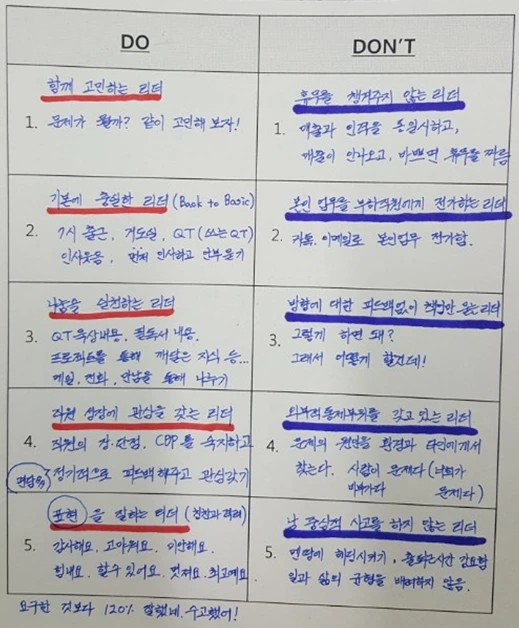 DO
함께 고민하는 리더
1. 문제가 뭘까? 같이 고민해 보자!
기본에 충실한 리더 (Back to Basic)
2. 7시 출근, 기도실, QT (쓰는 QT)
인사 웃음, 먼저 인사하고 안부묻기
나눔을 실천하는 리더
3. QT 묵상내용, 필독서 내용,
프로젝트를 통해 깨달은 지식 등...
메일, 전화, 만남을 통해 나누기
직원 성장에 관심을 갖는 리더
4. 직원의 강·단점, CDP를 숙지하고
면담 정기적으로 피드백해주고 관심갖기
표현을 잘하는 리더 (칭찬과 격려)
5. 감사해요. 고마워요. 미안해요.
힘내요. 할수 있어요. 멋져요. 최고예요
요구한 것보다 120% 잘했네. 수고했어!
DON'T
휴무를 챙겨주지 않는 리더
1. 매출과 인력을 동일시하고,
매출이 안나오고, 바쁘면 휴무를 짜름
본인 업무를 부하직원에게 전가하는 리더
2. 카톡, 이메일로 본인업무 전가함.
방향에 대한 피드백없이 책임만 묻는 리더
3. 그렇게 하면 돼?
그래서 어떻게 할건데!
외부적 문제부위를 갖고 있는 리더
4. 문제의 원인을 환경과 타인에게서
찾는다. 사람이 문제다 (너희가 문제다)
나 중심적 사고를 하지 않는 리더
5. 면영에 헤딩시키기, 출퇴근시간 강요함
일과 삶의 균형을 배려하지 않음.